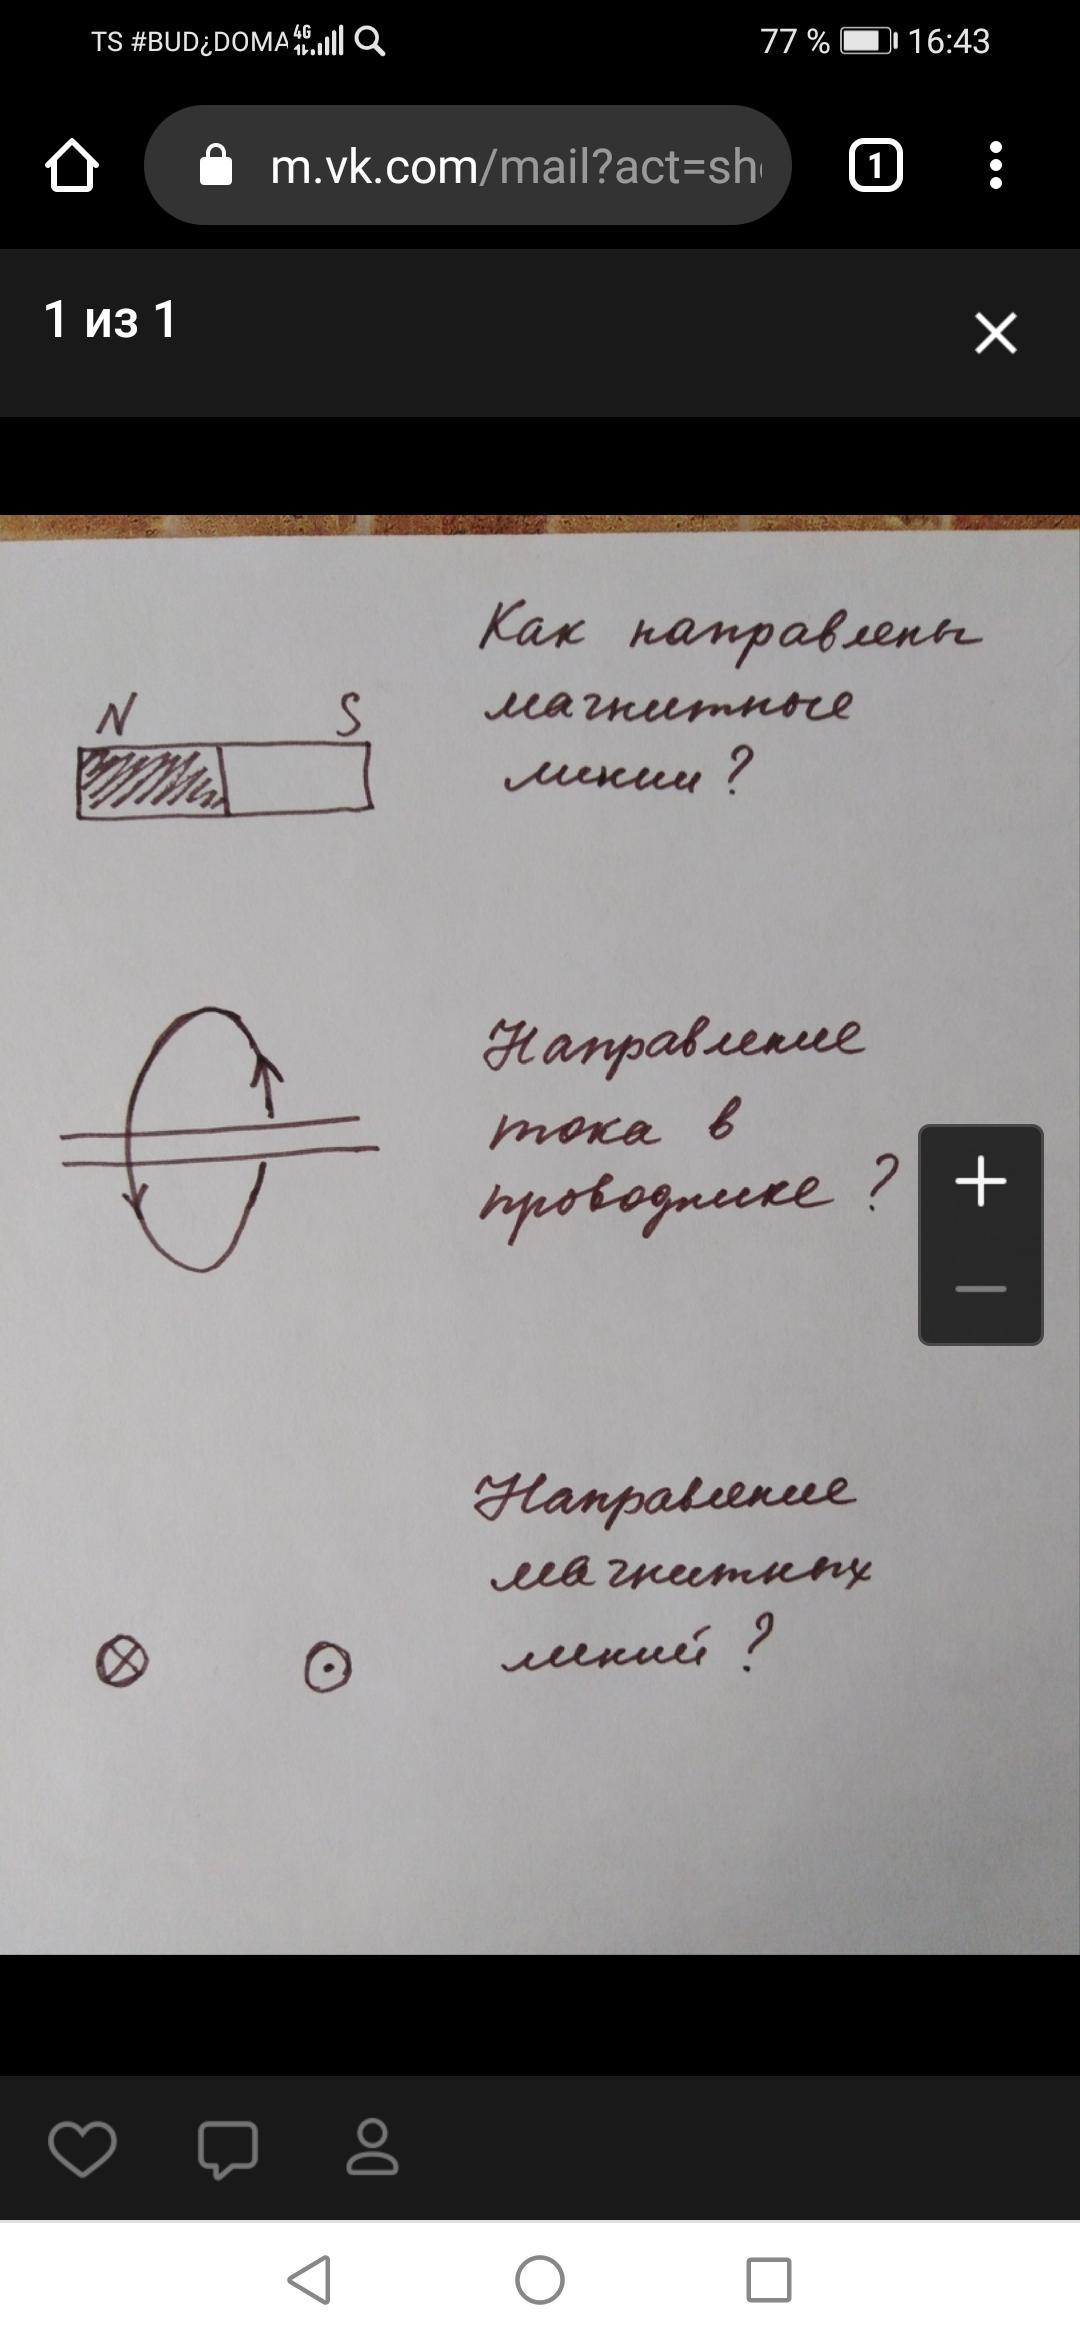 TS #BUD¿DOMA 4G 77 % 16:43
m.vk.com/mail?act=sh
1
1 из 1
Как направлены
магнитные
линии?
N S
Направление
тока в
проводнике ?
+
−
Направление
магнитных
линий ?